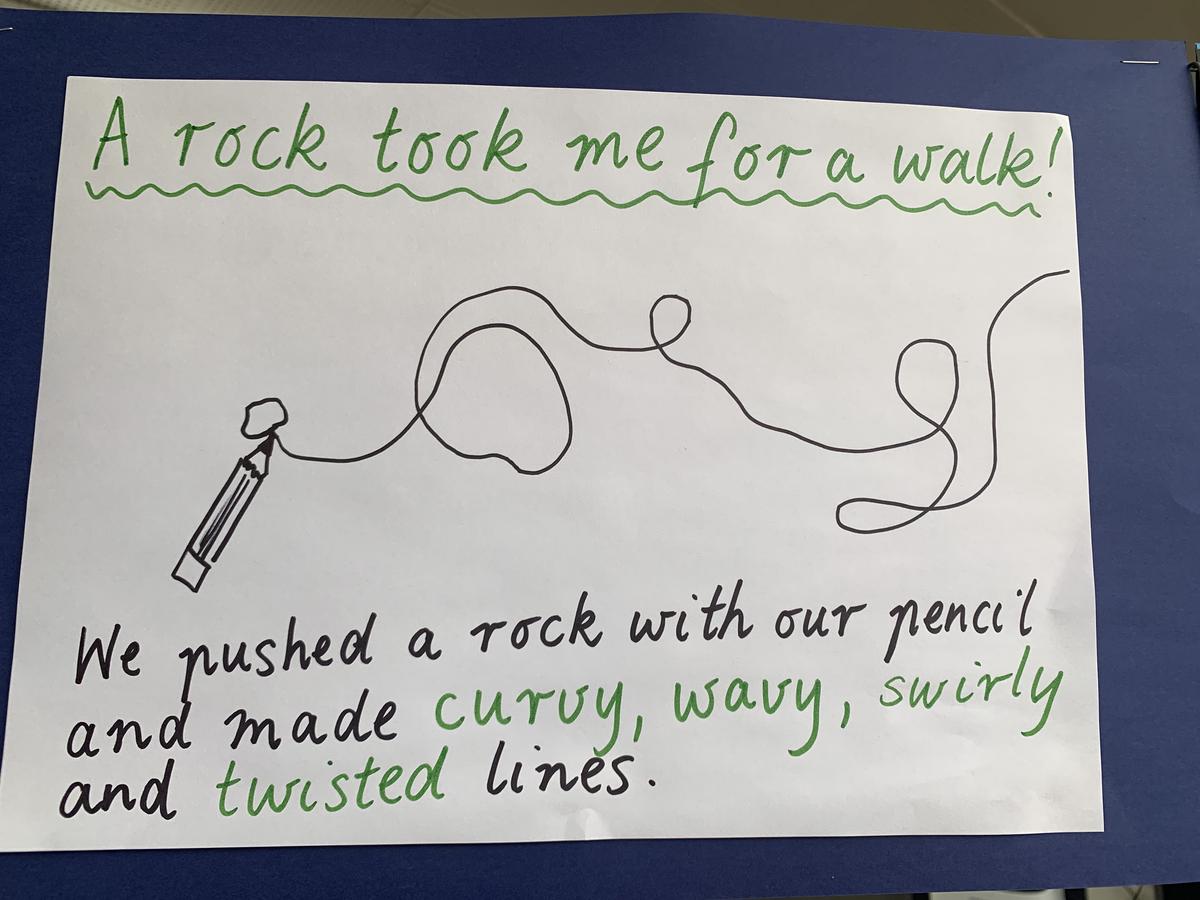 A rock took me for a walk!
We pushed a rock with our pencil
and made curvy, wavy, swirly
and twisted lines.